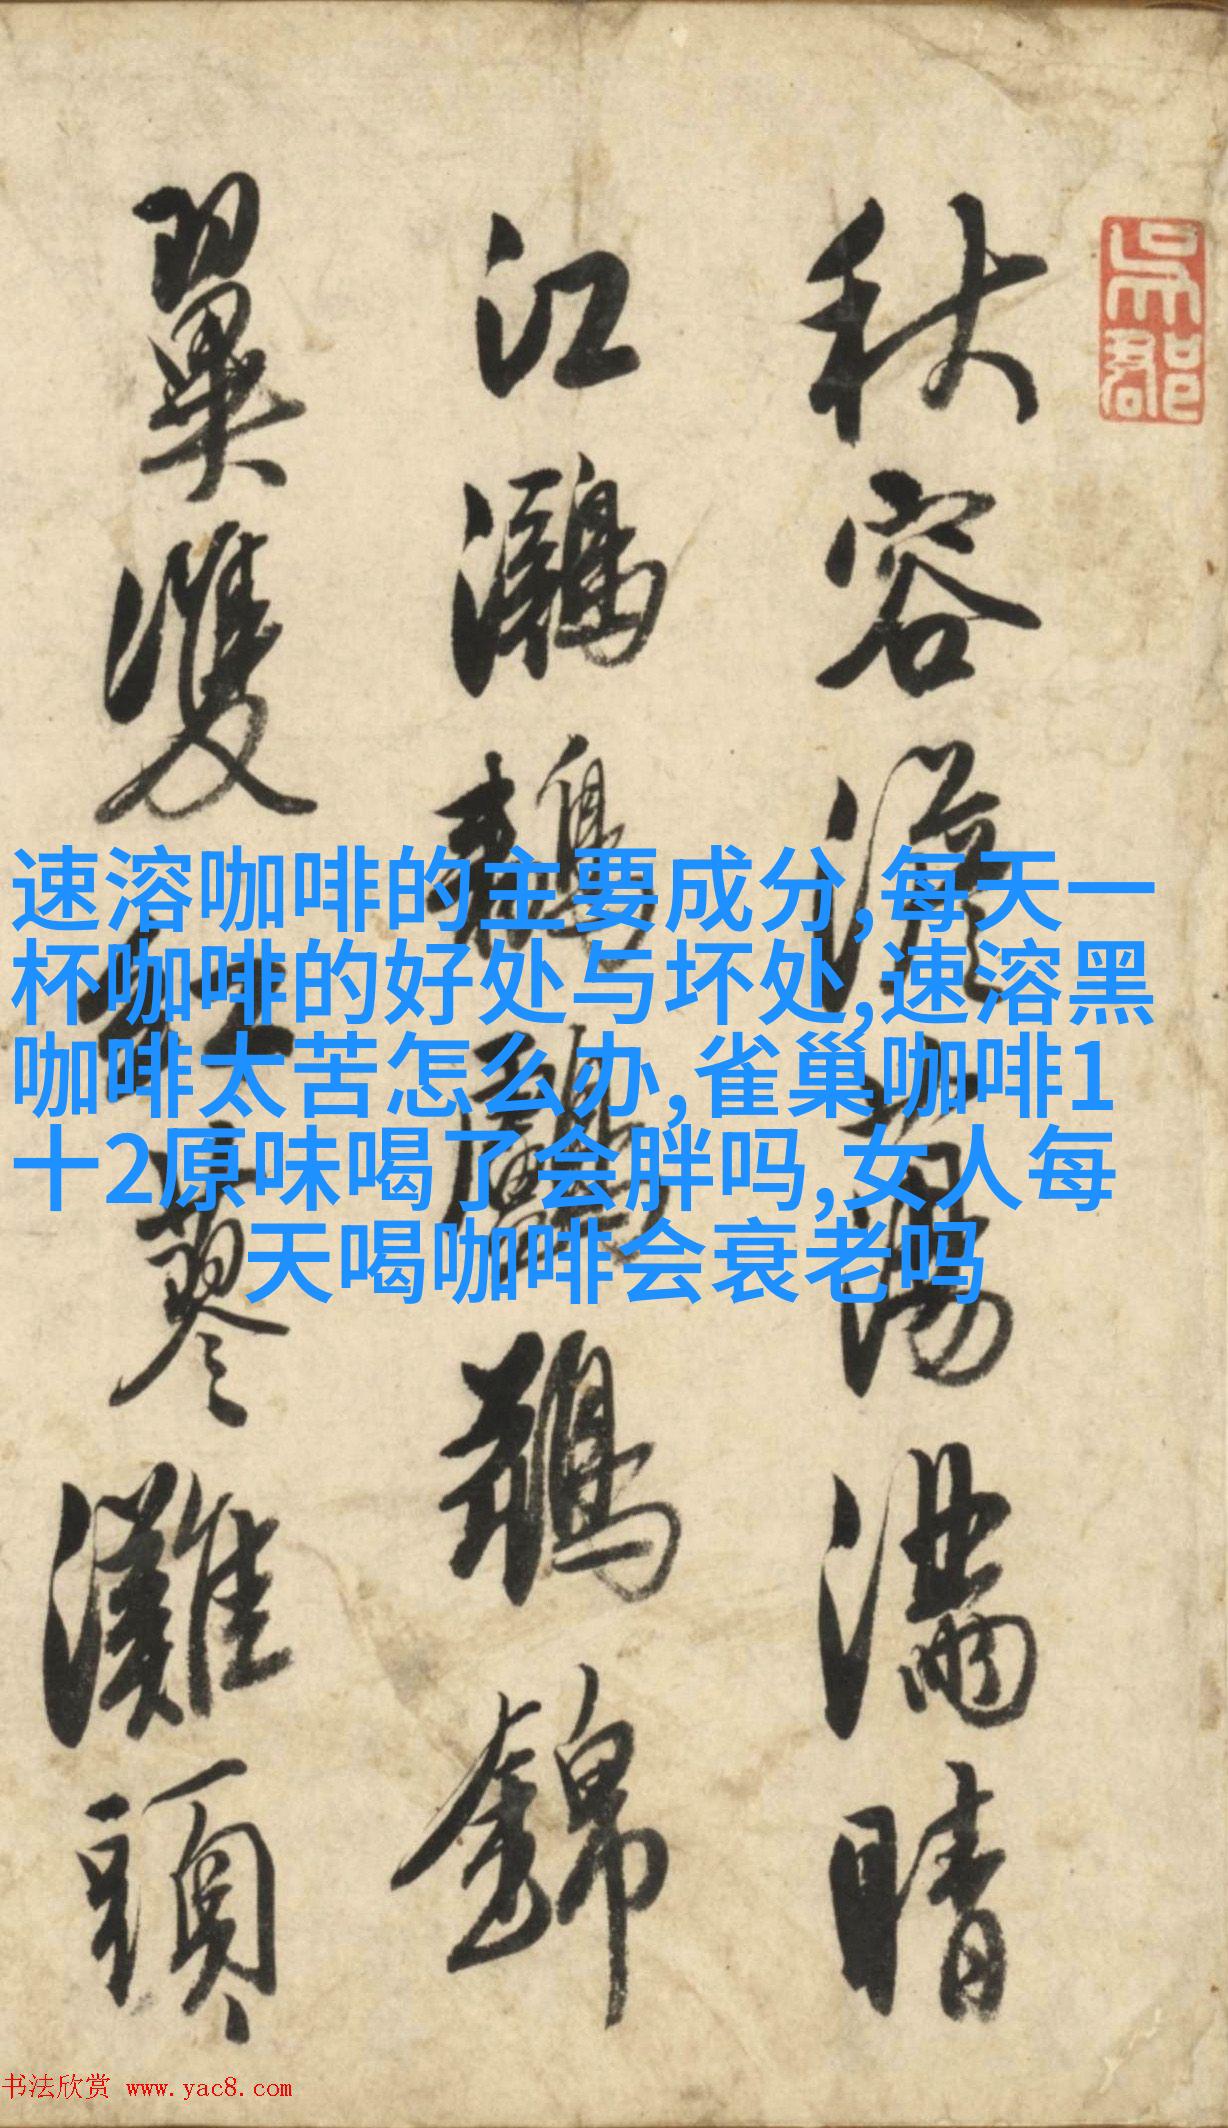 秋容澹蕩滿晴
江鸂鶒
鵝錦
翼雙紅蓼灘頭
吳郡
速溶咖啡的主要成分,每天一
杯咖啡的好处与坏处,速溶黑
咖啡太苦怎么办,雀巢咖啡1
十2原味喝了会胖吗,女人每
天喝咖啡会衰老吗
书法欣赏 www.yac8.com